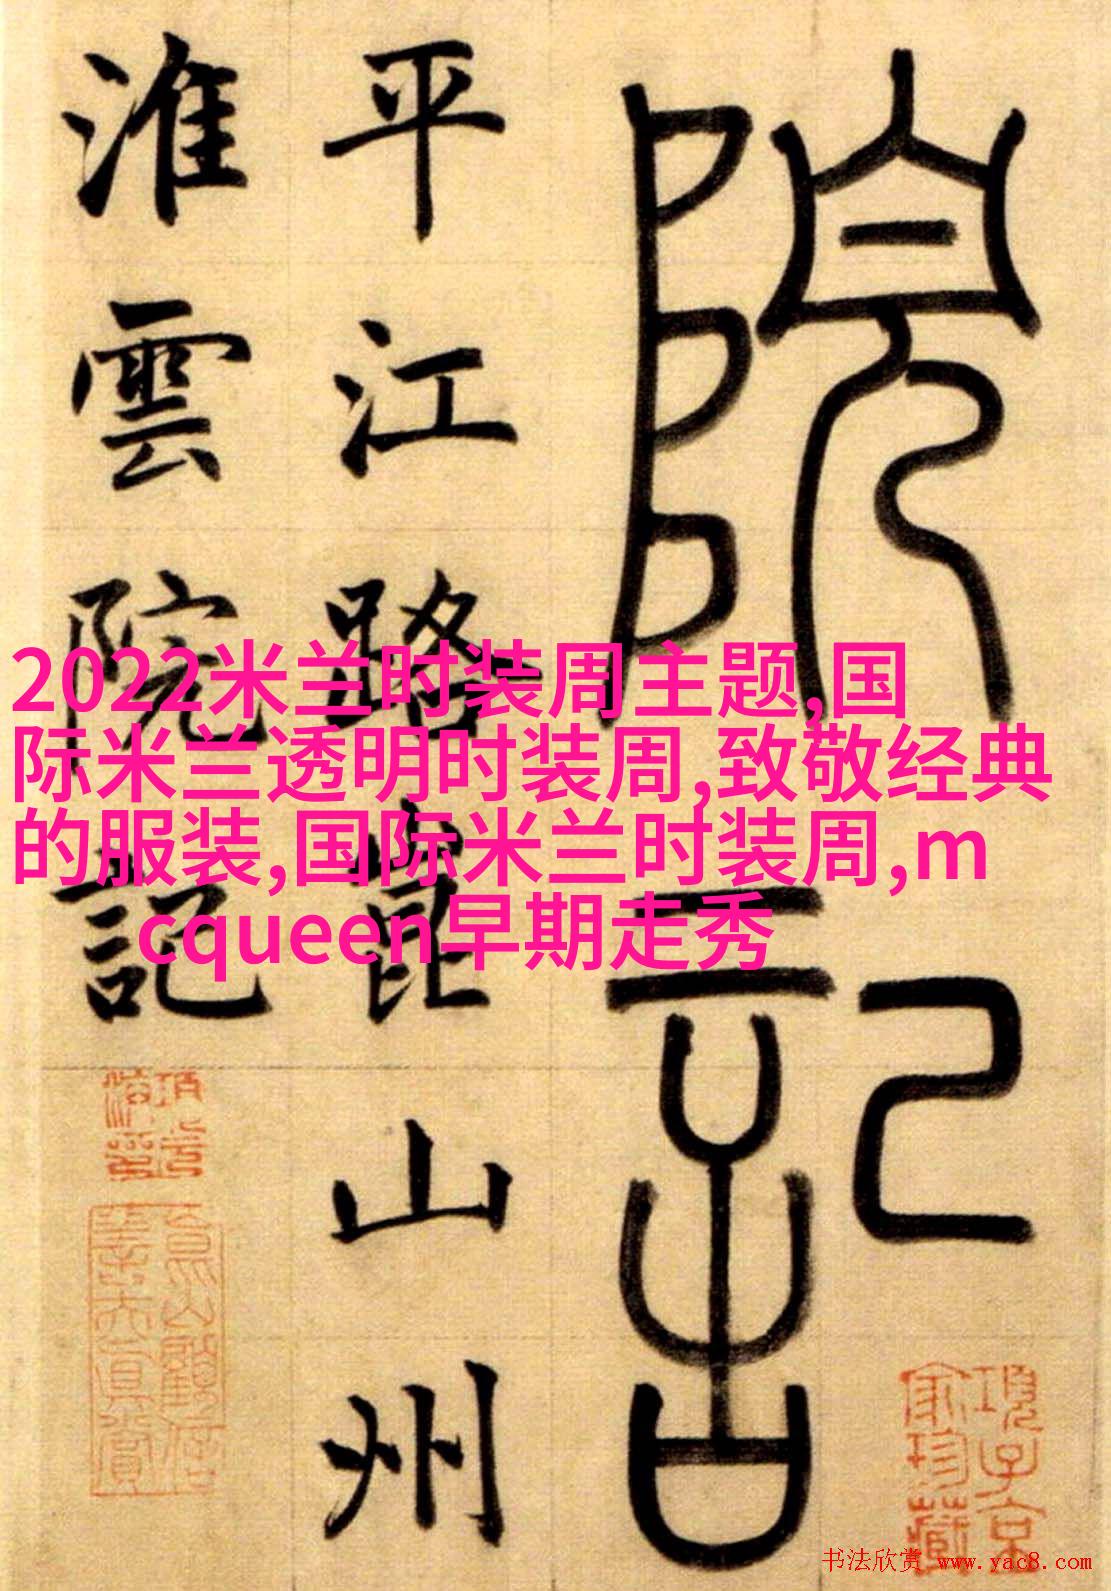 院記
平江路崑山州
淮雲院記
2022米兰时装周主题,国
际米兰透明时装周,致敬经典
的服装,国际米兰时装周,m
cqueen早期走秀
項子京
家珍藏
书法欣赏 www.yac8.com